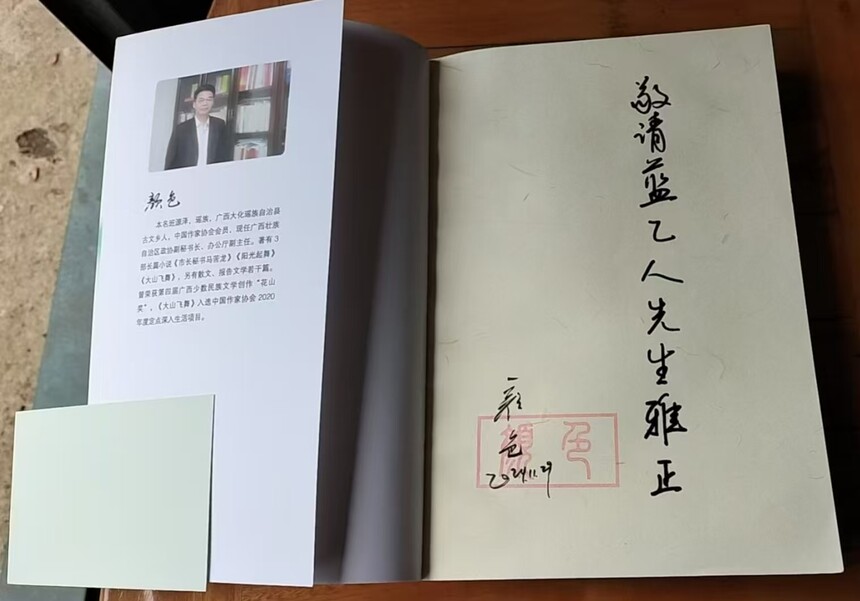 颜色
本名班源泽，瑶族，广西大化瑶族自治县
古文乡人，中国作家协会会员，现任广西壮族
自治区政协副秘书长、办公厅副主任。著有3
部长篇小说《市长秘书马苋龙》《阳光起舞》
《大山飞舞》，另有散文、报告文学若干篇。
曾荣获第四届广西少数民族文学创作“花山
奖”，《大山飞舞》入选中国作家协会2020
年度定点深入生活项目。
敬请蓝乙人先生雅正
颜色
2024.11.29
颜色